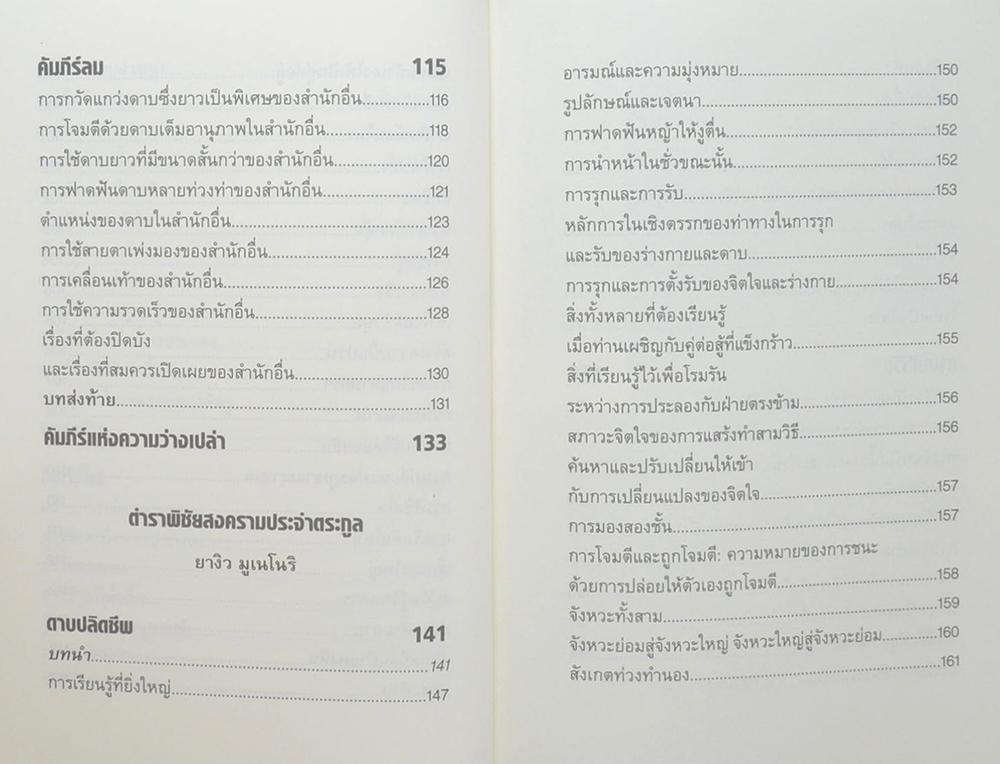 คัมภีร์ลม 115
การกวัดแกว่งดาบซึ่งยาวเป็นพิเศษของสำนักอื่น 116
การโจมตีด้วยดาบเต็มอานุภาพในสำนักอื่น 118
การใช้ดาบยาวที่มีขนาดสั้นกว่าของสำนักอื่น 120
การฟาดฟันดาบหลายท่วงท่าของสำนักอื่น 121
ตำแหน่งของดาบในสำนักอื่น 123
การใช้สายตาเพ่งมองของสำนักอื่น 124
การเคลื่อนเท้าของสำนักอื่น 126
การใช้ความรวดเร็วของสำนักอื่น 128
เรื่องที่ต้องปิดบัง
และเรื่องที่สมควรเปิดเผยของสำนักอื่น 130
บทส่งท้าย 131
คัมภีร์แห่งความว่างเปล่า 133
ตำราพิชัยสงครามประจำตระกูล
ยางิว มูเนโนริ
ดาบปลิดชีพ 141
บทนำ 141
การเรียนรู้ที่ยิ่งใหญ่ 147
อารมณ์และความมุ่งหมาย 150
รูปลักษณ์และเจตนา 150
การฟาดฟันหญ้าให้งูตื่น 152
การนำหน้าในชั่วขณะนั้น 152
การรุกและการรับ 153
หลักการในเชิงตรรกของท่าทางในการรุก
และรับของร่างกายและดาบ 154
การรุกและการตั้งรับของจิตใจและร่างกาย 154
สิ่งทั้งหลายที่ต้องเรียนรู้
เมื่อท่านเผชิญกับคู่ต่อสู้ที่แข็งกร้าว 155
สิ่งที่เรียนรู้ไว้เพื่อโรมรัน
ระหว่างการประลองกับฝ่ายตรงข้าม 156
สภาวะจิตใจของการแสร้งทำสามวิธี 156
ค้นหาและปรับเปลี่ยนให้เข้า
กับการเปลี่ยนแปลงของจิตใจ 157
การมองสองชั้น 157
การโจมตีและถูกโจมตี: ความหมายของการชนะ
ด้วยการปล่อยให้ตัวเองถูกโจมตี 158
จังหวะทั้งสาม 159
จังหวะย่อมสู่จังหวะใหญ่ จังหวะใหญ่สู่จังหวะย่อม 160
สังเกตท่วงทำนอง 161